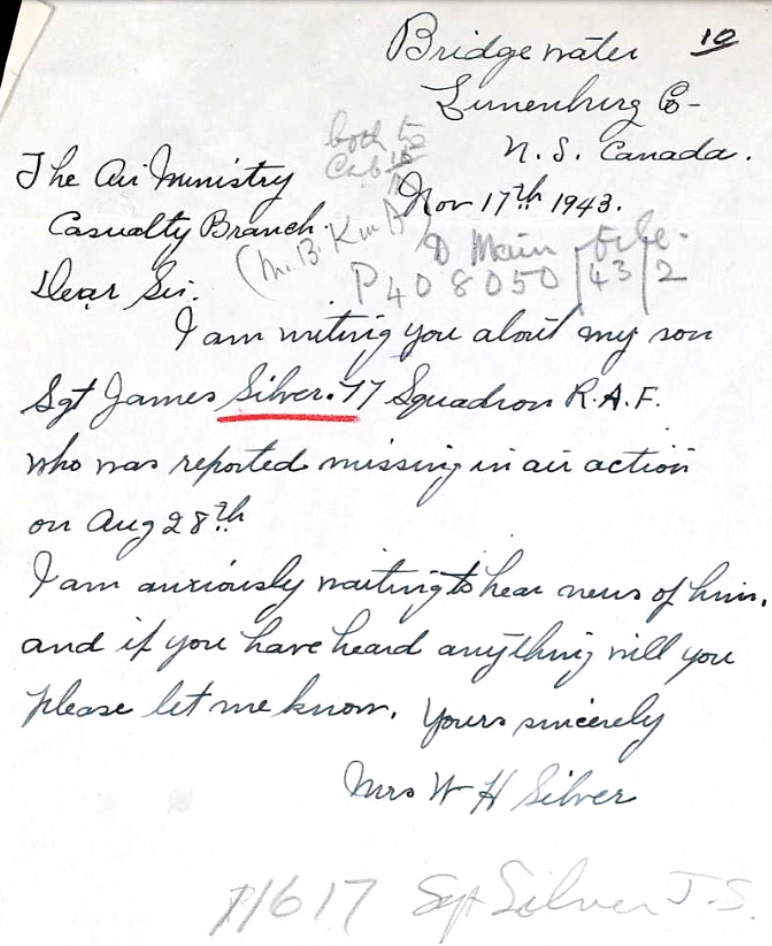 Bridgewater 10
Lunenburg Co-
N. S. Canada.
The Air Ministry
Nov 17th 1943.
Casualty Branch.
Main File.
P408050/43/2
Dear Sir.
I am writing you about my son
Sgt James Silver. 77 Squadron R.A.F.
who was reported missing in air action
on Aug 28th
I am anxiously waiting to hear news of him,
and if you have heard anything will you
please let me know. Yours sincerely
Mrs W H Silver
1617 Sgt Silver J.S.